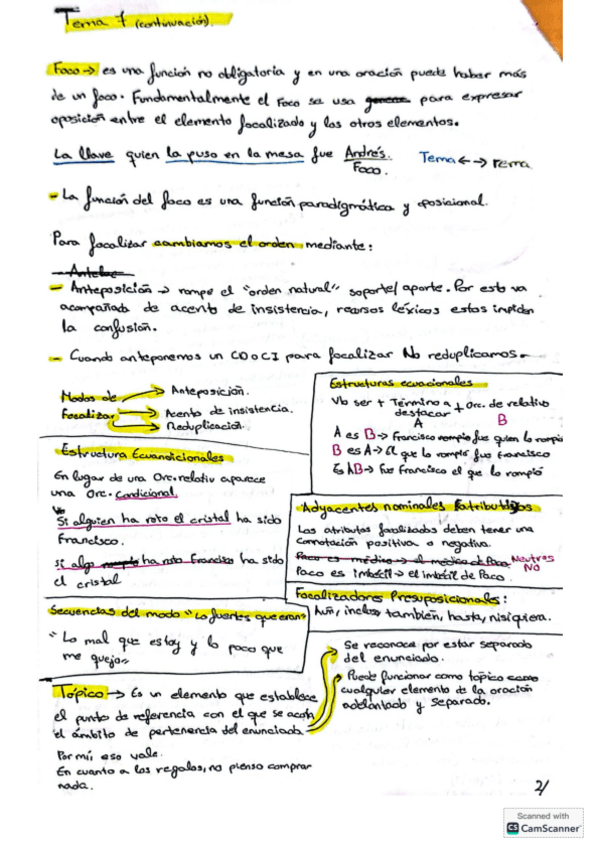 Tema 7 (continuación).
Foco → es una función no obligatoria y en una oración puede haber más
de un foco. Fundamentalmente el Foco se usa para expresar
oposición entre el elemento focalizado y los otros elementos.
La llave quien la puso en la mesa fue Andrés. Tema ← → rema
Foco.
- La función del foco es una función paradigmática y oposicional.
Para focalizar cambiamos el orden mediante:
- Anteposición → rompe el "orden natural" soporte/aporte. Por esto va
acompañada de acento de insistencia, recursos léxicos estos impiden
la confusión.
- Cuando anteponemos un CD o CI para focalizar No reduplicamos.
Modos de Focalizar
Anteposición.
Acento de insistencia.
Reduplicación.
Estructuras ecuacionales
Vb ser + Término a destacar + Orc. de relativo
A B
A es B → Francisco fue quien lo rompió
B es A → El que lo rompió fue Francisco
Es AB → Fue Francisco el que lo rompió
Estructura Ecuandicionales
En lugar de una Orc. relativ aparece
una Orc. Condicional.
Si alguien ha roto el cristal ha sido
Francisco.
Si algo ha roto Francisco ha sido
el cristal
Adyacentes nominales Fatributivos
Los atributos focalizados deben tener una
connotación positiva o negativa.
Paco es médico → el médico de Paco Neutros
NO
Paco es imbécil → el imbécil de Paco.
Focalizadores Presuposicionales:
Aún, incluso también, hasta, ni siquiera.
Secuencias del modo "Lo fuertes que eran"
"Lo mal que estoy y lo poco que
me quejo"
Tópico → Es un elemento que establece
el punto de referencia con el que se acota
el ámbito de pertenencia del enunciado.
Se reconoce por estar separado
del enunciado.
Puede funcionar como tópico como
cualquier elemento de la oración
adelantado y separado.
Por mí, eso vale.
En cuanto a los regalos, no pienso comprar
nada.
2/
Scanned with
CS CamScanner